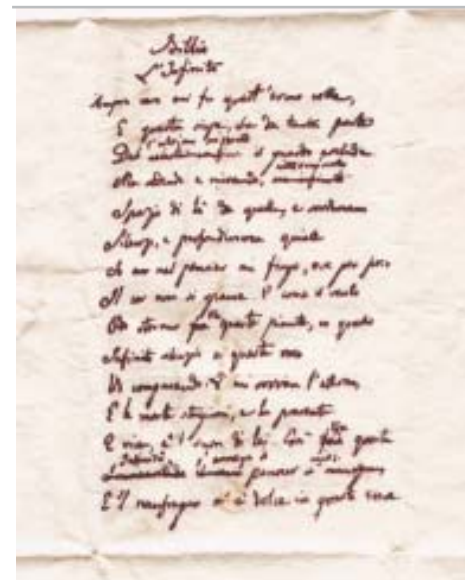 Idillio
L'Infinito
Sempre caro mi fu quest'ermo colle,
E questa siepe, che da tanta parte
Del il guardo esclude
Ma sedendo e mirando, interminato
Spazio di là da quella, e sovrumani
Silenzi, e profondissima quiete
Io nel pensier mi fingo, ove per poco
Il cor non si spaura. E come il vento
Odo stormir fra queste piante, io quello
Infinito silenzio a questa voce
Vo comparando: e mi sovvien l'eterno,
E le morte stagioni, e la presente
E viva, e 'l suon di lei. Così fra questa
pensier
E 'l naufragar m'è dolce in questo mare